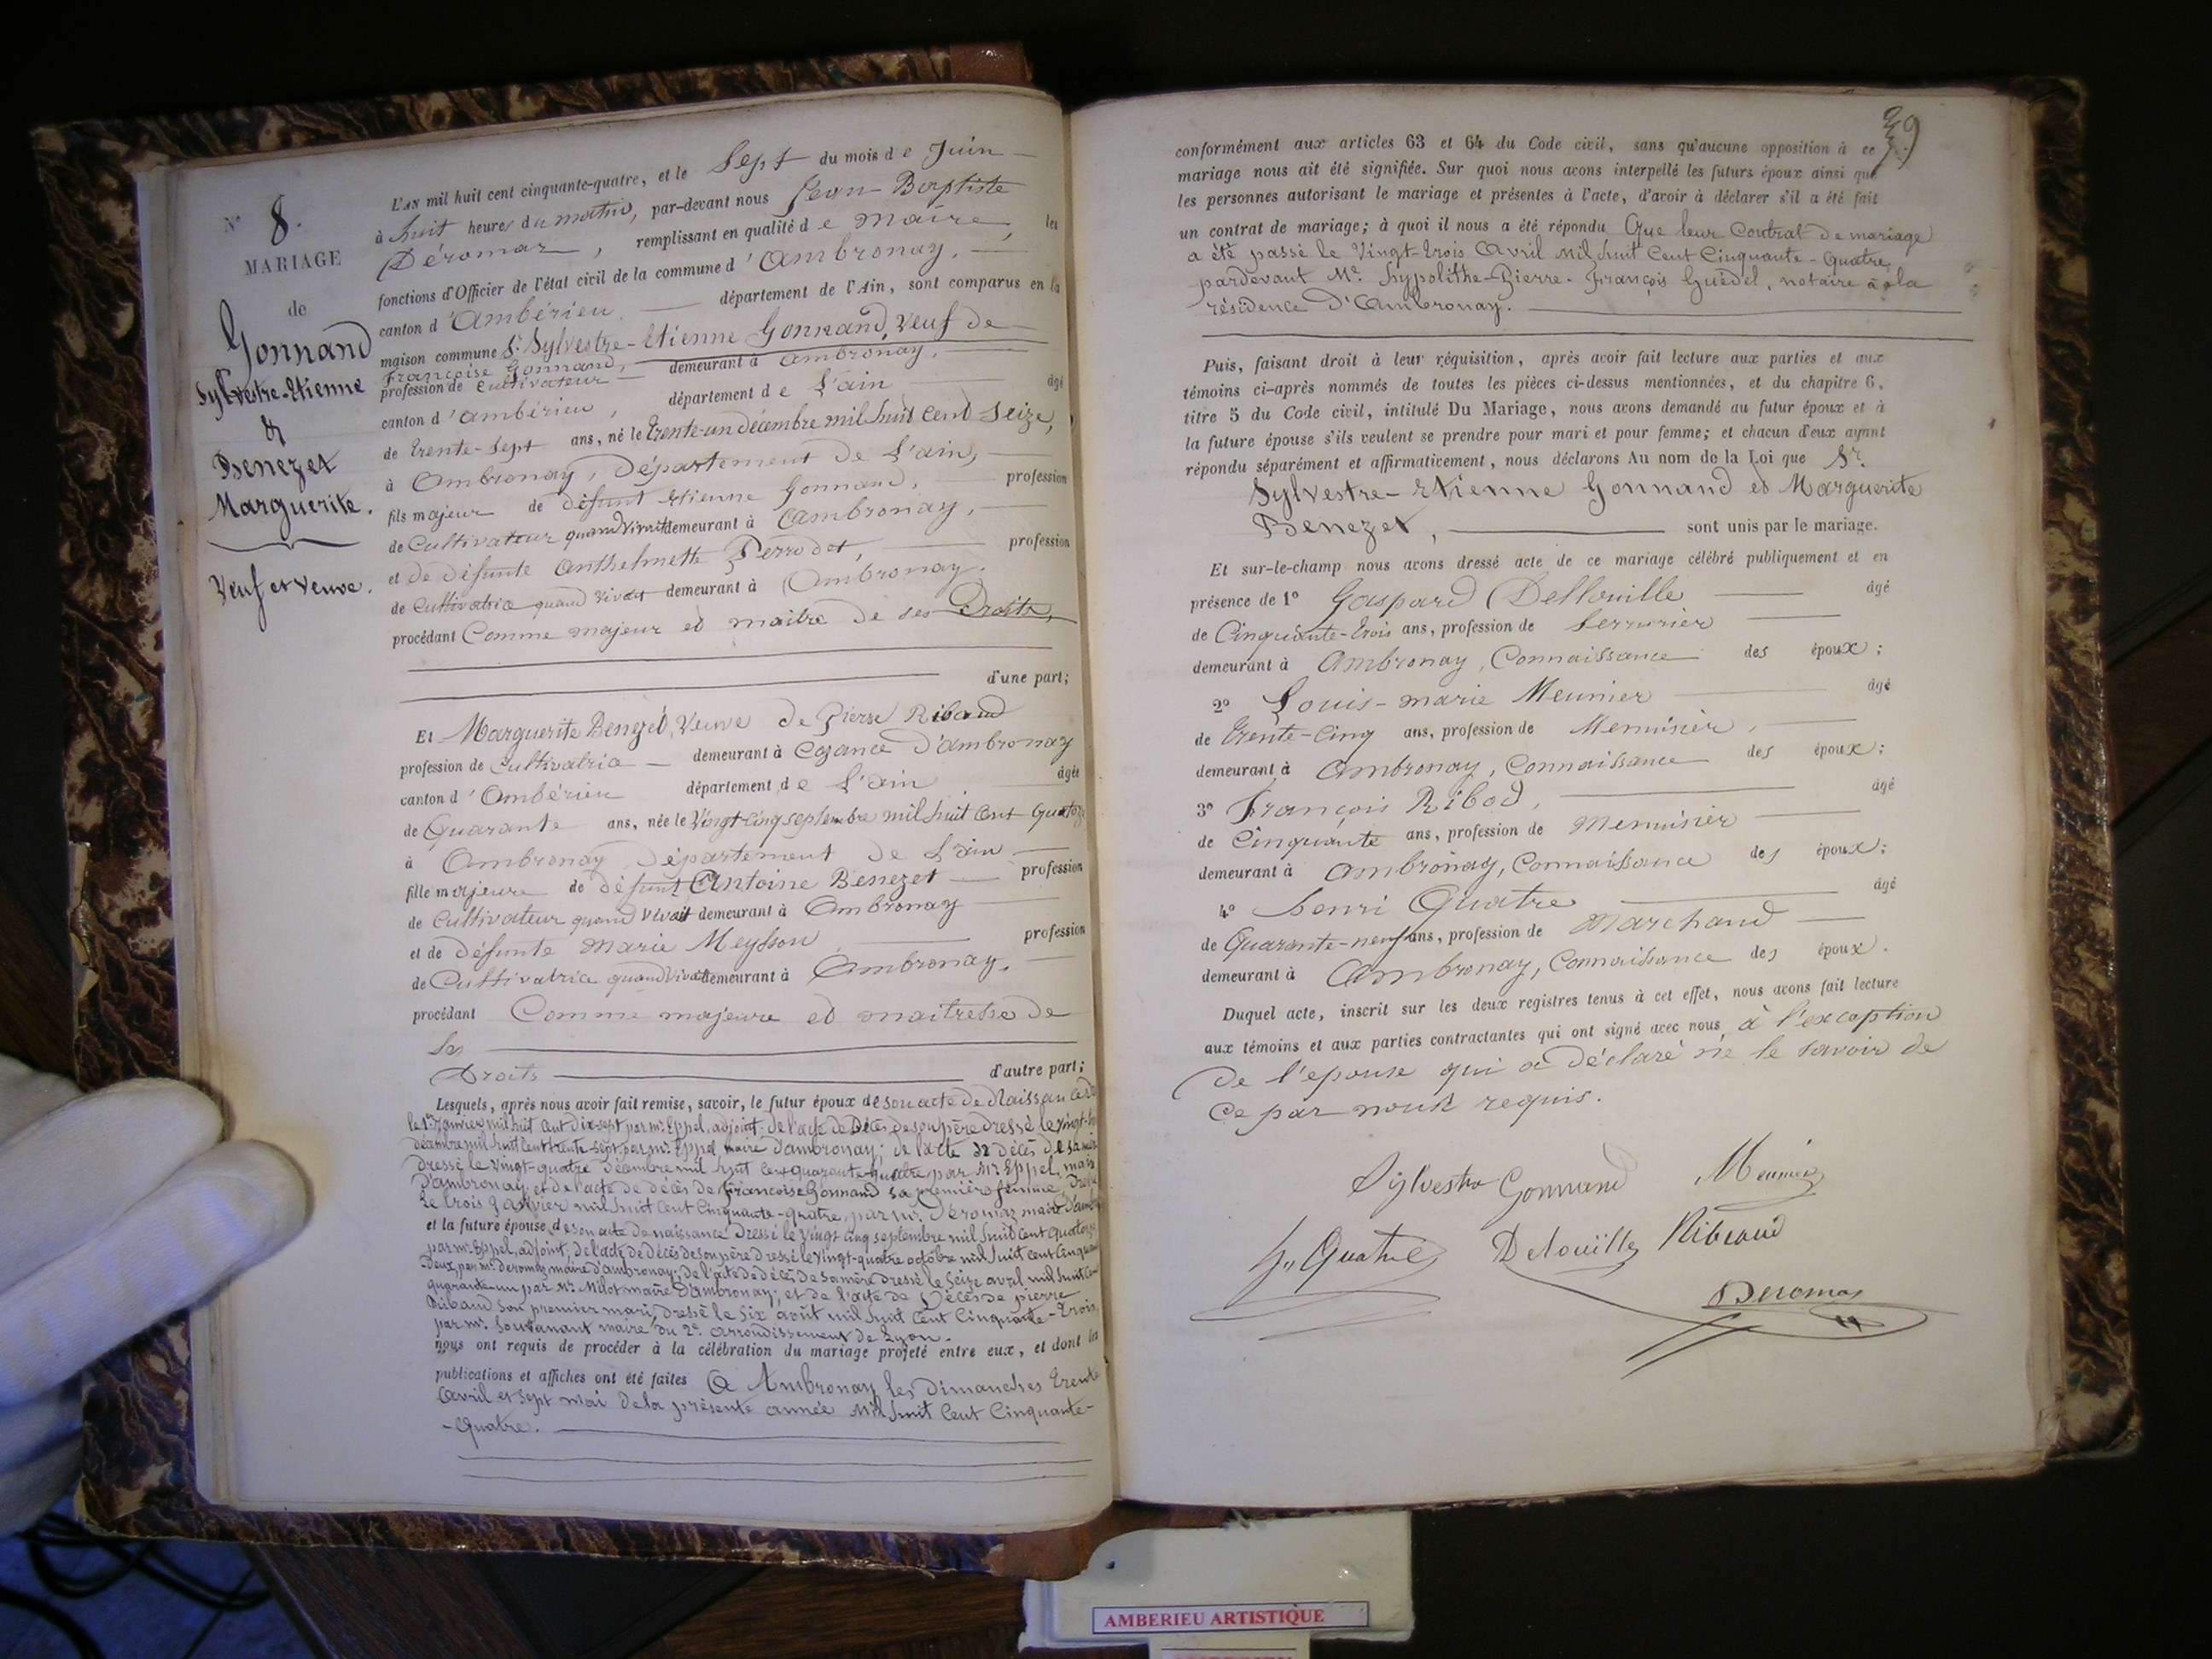 N° 8.
MARIAGE
de
Gonnand
Sylvestre-Etienne
&
Benezet
Marguerite.
Veuf et Veuve.
L'AN mil huit cent cinquante-quatre, et le Sept du mois de Juin
à huit heures du matin, par-devant nous Jean-Baptiste
Déromaz, remplissant en qualité de maire, les
fonctions d'Officier de l'état civil de la commune d'Ambronay,
canton d'Ambérieu, département de l'Ain, sont comparus en la
maison commune Sr. Sylvestre-Etienne Gonnand, Veuf de
Françoise Gonnand,
profession de cultivateur demeurant à Ambronay,
canton d'ambérieu, département de l'ain âgé
de trente-sept ans, né le trente-un décembre mil huit cent seize,
à Ambronay, Département de l'ain,
fils majeur de défunt Etienne Gonnand, profession
de Cultivateur quand vivait demeurant à Ambronay,
et de défunte Anthelmette Perrodet, profession
de Cultivatrice quand vivait demeurant à Ambronay.
procédant Comme majeur et maitre de ses Droits,
d'une part;
Et Marguerite Benezet, Veuve de Pierre Ribaud
profession de Cultivatrice demeurant à Cozance d'ambronay
canton d'Ambérieu département de l'ain âgée
de Quarante ans, née le Vingt-cinq septembre mil huit cent quatorze
à Ambronay Département de l'ain
fille majeure de défunt Antoine Benezet profession
de Cultivateur quand vivait demeurant à Ambronay
et de défunte Marie Meysson, profession
de Cultivatrice quand vivait demeurant à Ambronay,
procédant Comme majeure et maitresse de
ses
Droits d'autre part;
Lesquels, après nous avoir fait remise, savoir, le futur époux de son acte de Naissance
le 1er Janvier mil huit cent dix-sept par mr. Eppel, adjoint; de l'acte de Décès de son père dressé le vingt-
décembre mil huit cent trente-sept, par mr. Eppel maire d'ambronay; de l'acte de décès de sa mère
dressé le vingt-quatre décembre mil huit cent quarante-quatre par Mr. Eppel, maire
d'ambronay; et de l'acte de décès de Françoise Gonnand sa première femme, Dressé
le trois Janvier mil huit cent Cinquante-quatre, par mr. Déromaz maire d'ambronay
et la future épouse de son acte de naissance Dressé le vingt cinq septembre mil huit cent quatorze
par mr. Eppel, adjoint; de l'acte de Décès de son père dressé le vingt-quatre octobre mil huit cent cinquante
Deux, par mr. deromaz maire d'ambronay; de l'acte de décès de sa mère dressé le seize avril mil huit cent
quarante-un par Mr. Milot maire d'ambronay; et de l'acte de Décès de pierre
Ribaud son premier mari, dressé le six août mil huit cent cinquante-trois,
par mr. maire du 2e. arrondissement de Lyon.
nous ont requis de procéder à la célébration du mariage projeté entre eux, et dont les
publications et affiches ont été faites à Ambronay les dimanches trente
avril et sept mai de la présente année mil huit cent Cinquante-
-quatre.
39
conformément aux articles 63 et 64 du Code civil, sans qu'aucune opposition à ce
mariage nous ait été signifiée. Sur quoi nous avons interpellé les futurs époux ainsi que
les personnes autorisant le mariage et présentes à l'acte, d'avoir à déclarer s'il a été fait
un contrat de mariage; à quoi il nous a été répondu Que leur Contrat de mariage
a été passé le Vingt-trois Avril mil huit cent Cinquante-Quatre,
pardevant Me. hypolithe-Pierre-François Guédel, notaire à la
résidence d'Ambronay.
Puis, faisant droit à leur réquisition, après avoir fait lecture aux parties et aux
témoins ci-après nommés de toutes les pièces ci-dessus mentionnées, et du chapitre 6,
titre 5 du Code civil, intitulé Du Mariage, nous avons demandé au futur époux et à
la future épouse s'ils veulent se prendre pour mari et pour femme; et chacun d'eux ayant
répondu séparément et affirmativement, nous déclarons Au nom de la Loi que Sr.
Sylvestre-Etienne Gonnand et Marguerite
Benezet, sont unis par le mariage.
Et sur-le-champ nous avons dressé acte de ce mariage célébré publiquement et en
présence de 1° Gaspard Dellouille âgé
de Cinquante-trois ans, profession de Serrurier
demeurant à Ambronay, Connaissance des époux;
2° Louis-marie Meunier âgé
de trente-cinq ans, profession de Menuisier,
demeurant à Ambronay, Connaissance des époux;
3° François Ribod, âgé
de Cinquante ans, profession de menuisier
demeurant à Ambronay, Connaissance des époux;
4° henri Quatre âgé
de Quarante-neuf ans, profession de Marchand
demeurant à Ambronay, Connaissance des époux.
Duquel acte, inscrit sur les deux registres tenus à cet effet, nous avons fait lecture
aux témoins et aux parties contractantes qui ont signé avec nous, à l'exception
de l'epouse qui a déclaré ne le savoir de
ce par nous requis.
Sylvestre Gonnand Meunier
hri Quatre Delouille Ribeaud
Deromaz
AMBERIEU ARTISTIQUE